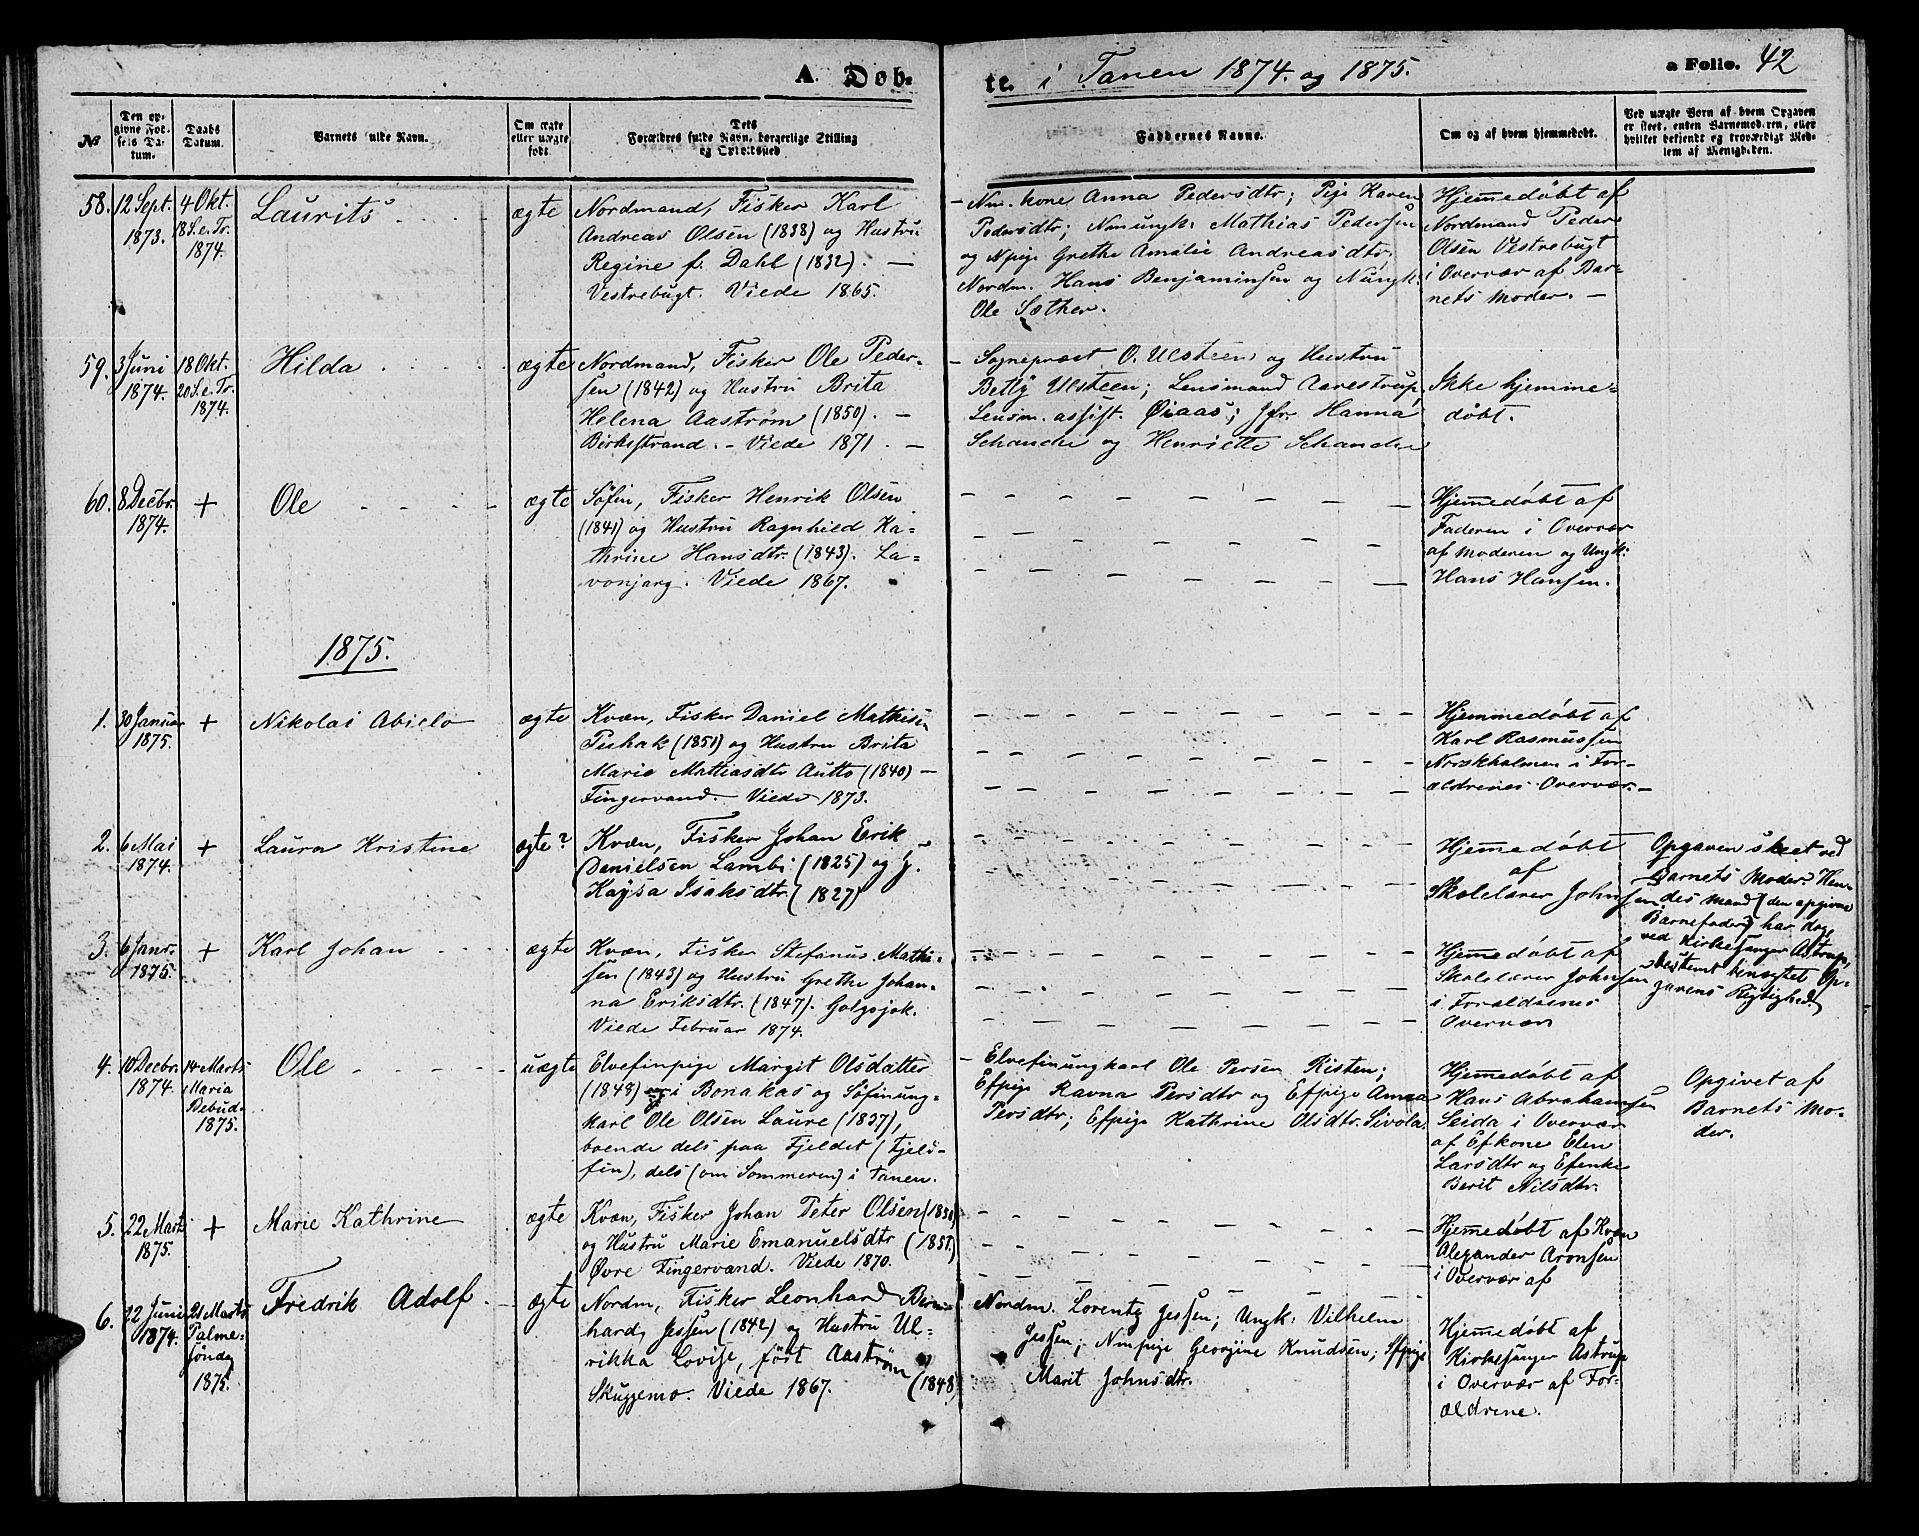 A. Døb-
te. i Tanen 1874. og 1875.
a Folio. 42
№
Den op-
givne Fød-
sels Da-
tum.
Daabs
Datum.
Barnets fulde Navn.
Om ægte
eller uægte
født.
Dets
Forældres fulde Navn, borgerlige Stilling
og Opholdssted
Faddernes Navne.
Om og af hvem hjemmedøbt.
Ved uægte Børn af hvem Opgaven
er skeet, enten Barnemoderen, eller
hvilket bekjendt og troværdigt Med-
lem af Menigheden.
58.
12 Sept.
1873.
4 Okt.
18 S. e. Tr.
1874.
Laurits
ægte
Nordmand, Fisker Karl
Andreas Olsen (1838) og Hustru
Regine f. Dahl (1832). —
Vestrebugt. Viede 1865.
— Nm. kone Anna Pedersdtr; Pige Karen
Pedersdtr; Nmungk: Mathias Pedersen
og Npige Grethe Amalie Andreasdtr;
Nordm. Hans Benjaminsen og Nungk:
Ole Sæther.
Hjemmedøbt af
Nordmand Peder
Olsen Vestrebugt
i Overvær af Bar-
nets Moder. —
59.
3 Juni
1874.
18 Okt.
20 S. e. Tr.
1874.
Hilda
ægte
Nordmand, Fisker Ole Peder-
sen (1842) og Hustru Brita
Helena Aaström (1850). —
Birkestrand. — Viede 1871. —
— Sognepræst O. Ulsteen og Hustru
Betty Ulsteen; Lensmand Aarestrup,
Lensm. assist. Øiaas; Jfr. Hanna
Schanche og Henriette Schanche
Ikke hjemme-
døbt.
60.
8 Decbr.
1874.
+
Ole
ægte
Søfin, Fisker Henrik Olsen
(1841) og Hustru Ragnhild Ka-
thrine Hansdtr. (1843). La-
vonjarg. Viede 1867.
Hjemmedøbt af
Faderen i Overvær
af Moderen og Ungk:
Hans Hansen.
1875.
1.
30 Januar
1875.
+
Nikolai Abielo
ægte
Kvæn, Fisker Daniel Mathisen
Puhak (1851) og Hustru Brita
Marie Mattiasdtr Autto (1840) —
Fingervand. — Viede 1873.
Hjemmedøbt af
Karl Rasmussen
Norskholmen i For-
ældrenes Overvær. —
2.
6 Mai
1874.
+
Laura Kristine
ægte?
Kvæn, Fisker Johan Erik
Danielsen Lambi (1825) og G.
Kaysa Isaksdtr. (1827)
Hjemmedøbt
af
Skolelærer Johnsen
Opgaven skeet ved
Barnets Moder. Hen-
des Mand (den opgivne
Barnefader) har dog
ved Kirkesanger Astrup,
bestemt benegtet Op-
gavens Rigtighed
3.
6 Janr.
1875.
+
Karl Johan
ægte
Kvæn, Fisker Stefanus Mathi-
sen (1843) og Hustru Grethe Johan-
na Eriksdtr. (1847). Golgojok.
Viede Februar 1874.
Hjemmedøbt af
Skolelærer Johnsen
i Forældrenes
Overvær
4.
10 Decbr.
1874.
14 Marts
Maria
Bebud.
1875.
Ole
uægte
Elvefinpige Margit Olsdatter
(1848) i Bonakas og Søfinung-
karl Ole Olsen Laure (1837),
boende dels paa Fjeldet (Fjeld-
fin), dels (om Sommeren) i Tanen.
— Elvefinungkarl Ole Persen Risten;
Efpige Ravna Persdtr og Efpige Anna
Persdtr; Efpige Kathrine Olsdtr. Sivola.
Hjemmedøbt af
Hans Abrahamsen
Seida i Overvær
af Efkone Elen
Larsdtr og Efenke
Berit Nilsdtr.
Opgivet af
Barnets Mo-
der.
5.
22 Marts
1875.
+
Marie Kathrine
ægte
Kvæn, Fisker Johan Peter Olsen (1830)
og Hustru Marie Emanuelsdtr (1851.)
Øvre Fingervand. Viede 1870.
Hjemmedøbt af Kvæn
Alexander Aronsen
i Overvær af
6.
22 Juni
1874.
21 Marts
Palme-
søndag
1875.
Fredrik Adolf
ægte
Nordm, Fisker Leonhard Bern-
hard Jessen (1842) og Hustru Ul-
rikka Lovise, født Aaström
(1848)
Skuggemo. Viede 1867.
Nordm. Lorentz Jessen; Ungk: Vilhelm
Jessen; Nmpige Georgine Knudsen; Sfpige
Marit Johnsdtr.
Hjemmedøbt af
Kirkesanger Astrup
i Overvær af For-
ældrene.